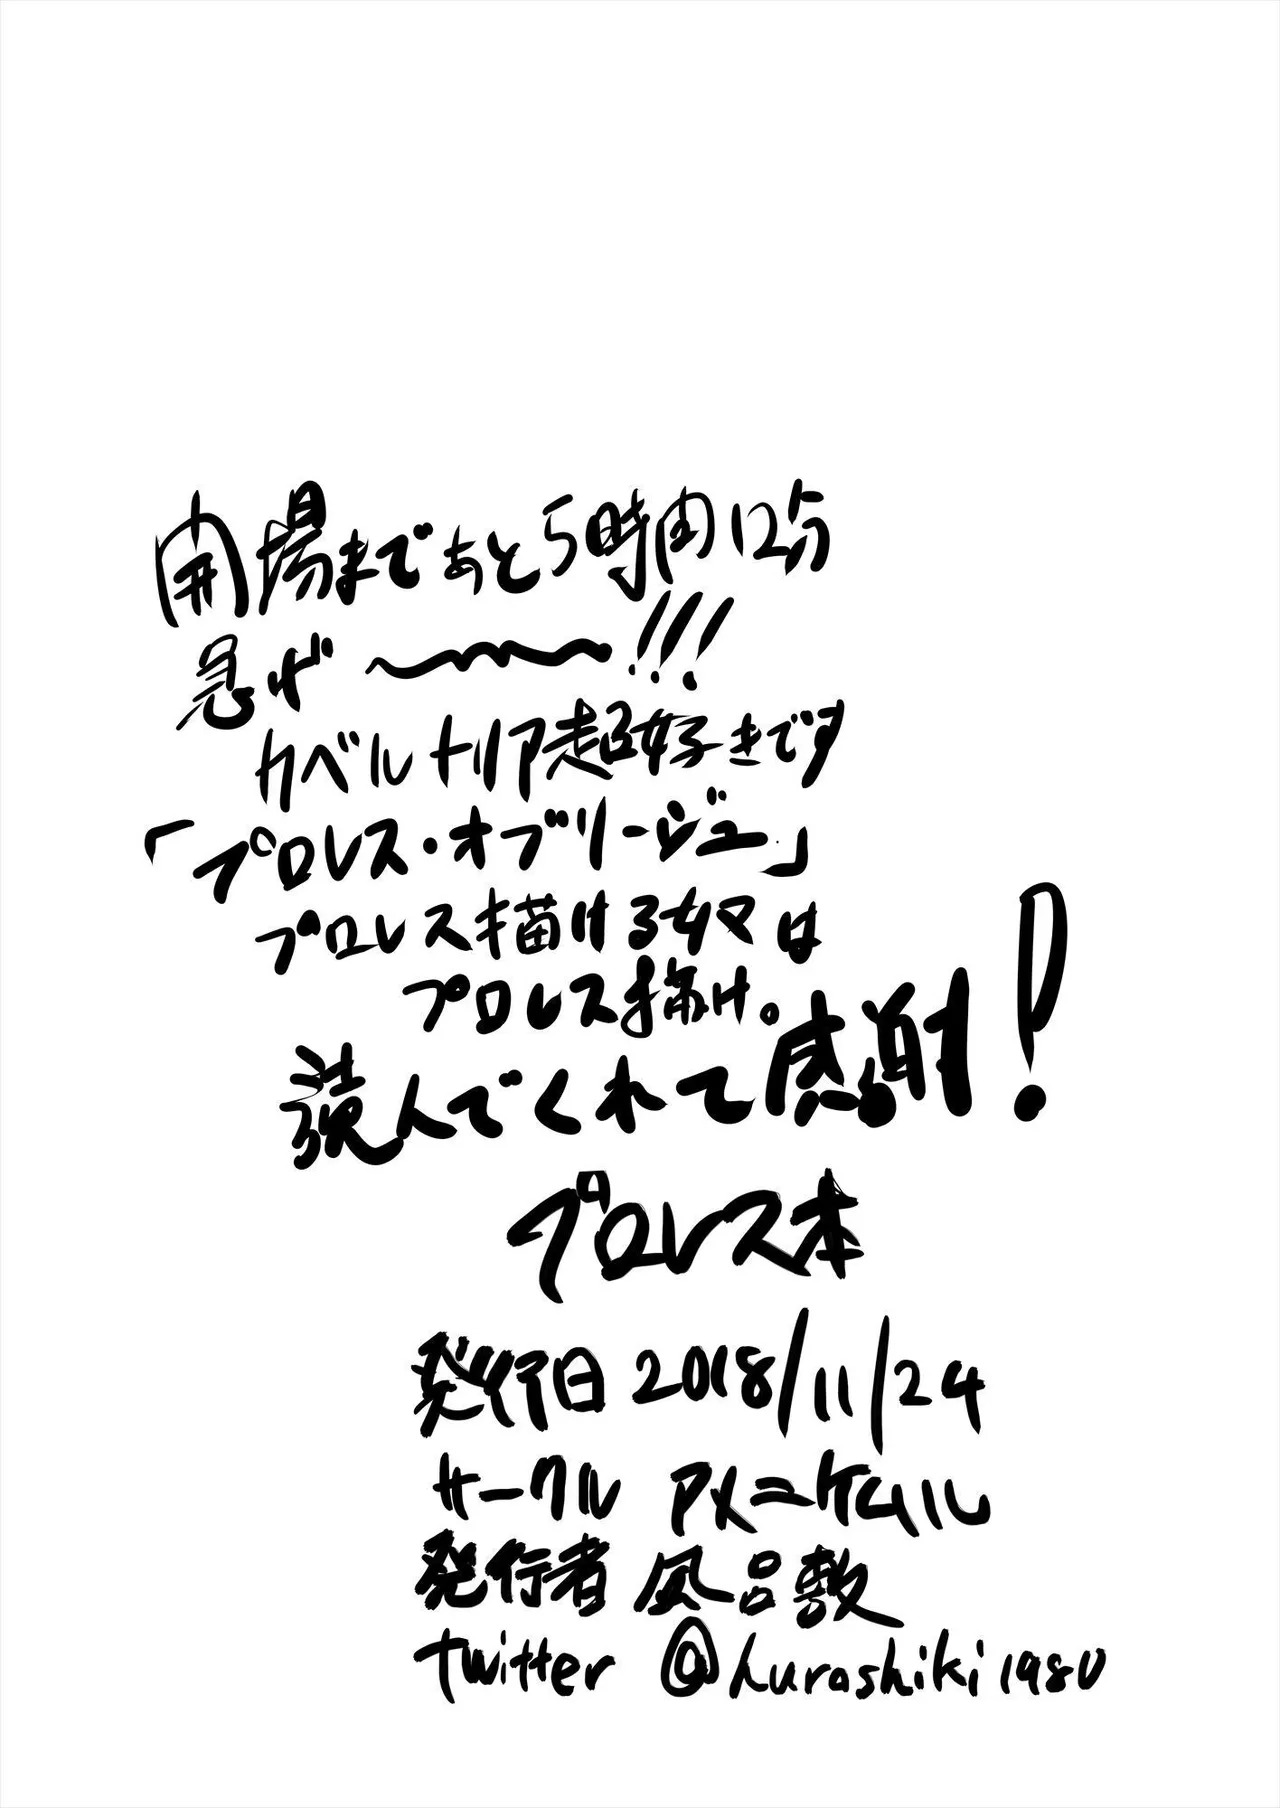 開場まであと5時間12分
急げ〜〜〜!!!
カベルトリア超好きです
「プロレス・オブリージュ」
プロレス描ける女マは
プロレス描け。
読んでくれて感謝!
プロレス本
発行日 2018/11/24
サークル アメニケムル
発行者 風呂敷
twitter @huroshiki1980